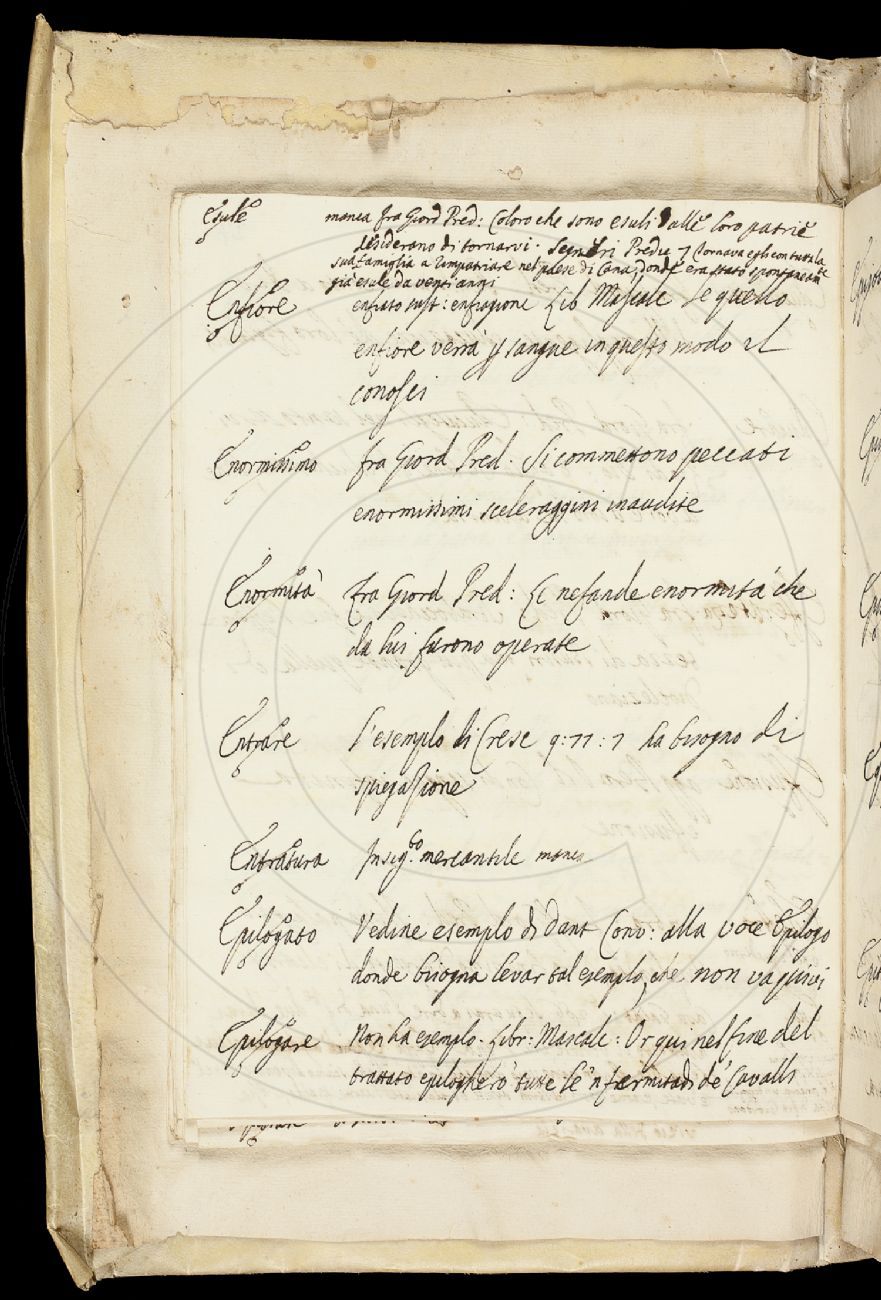 Esule manca fra Giord Pred: Coloro che sono esuli dalle loro patrie
desiderano di tornarvi. Segneri Predic 7 Tornava egli con tutta la
sua famiglia a rimpatriare nel paese di Cana, dond' era stato spontaneam.te
già esule da venti anni
Enfiore enfiato sust: enfiagione Lib Mascale Se quello
enfiore verrà p sangue in questo modo il
conosci
Enormissimo fra Giord Pred. Si commettono peccati
enormissimi sceleraggini inaudite
Enormità fra Giord Pred: Le nefande enormità che
da lui furono operate
Entrare l'esemplo di Crese 9:77:7 ha bisogno di
spiegazione
Entratura In sig.to mercantile manca
Epilogato Vedine esemplo di Dant Conv: alla voce Epilogo
donde bisogna levar tal esemplo, che non va quivi
Epilogare Non ha esemplo. Libr: Mascale: Or qui nel fine del
trattato epilogherò tutte le 'nfermitadi de' Cavalli